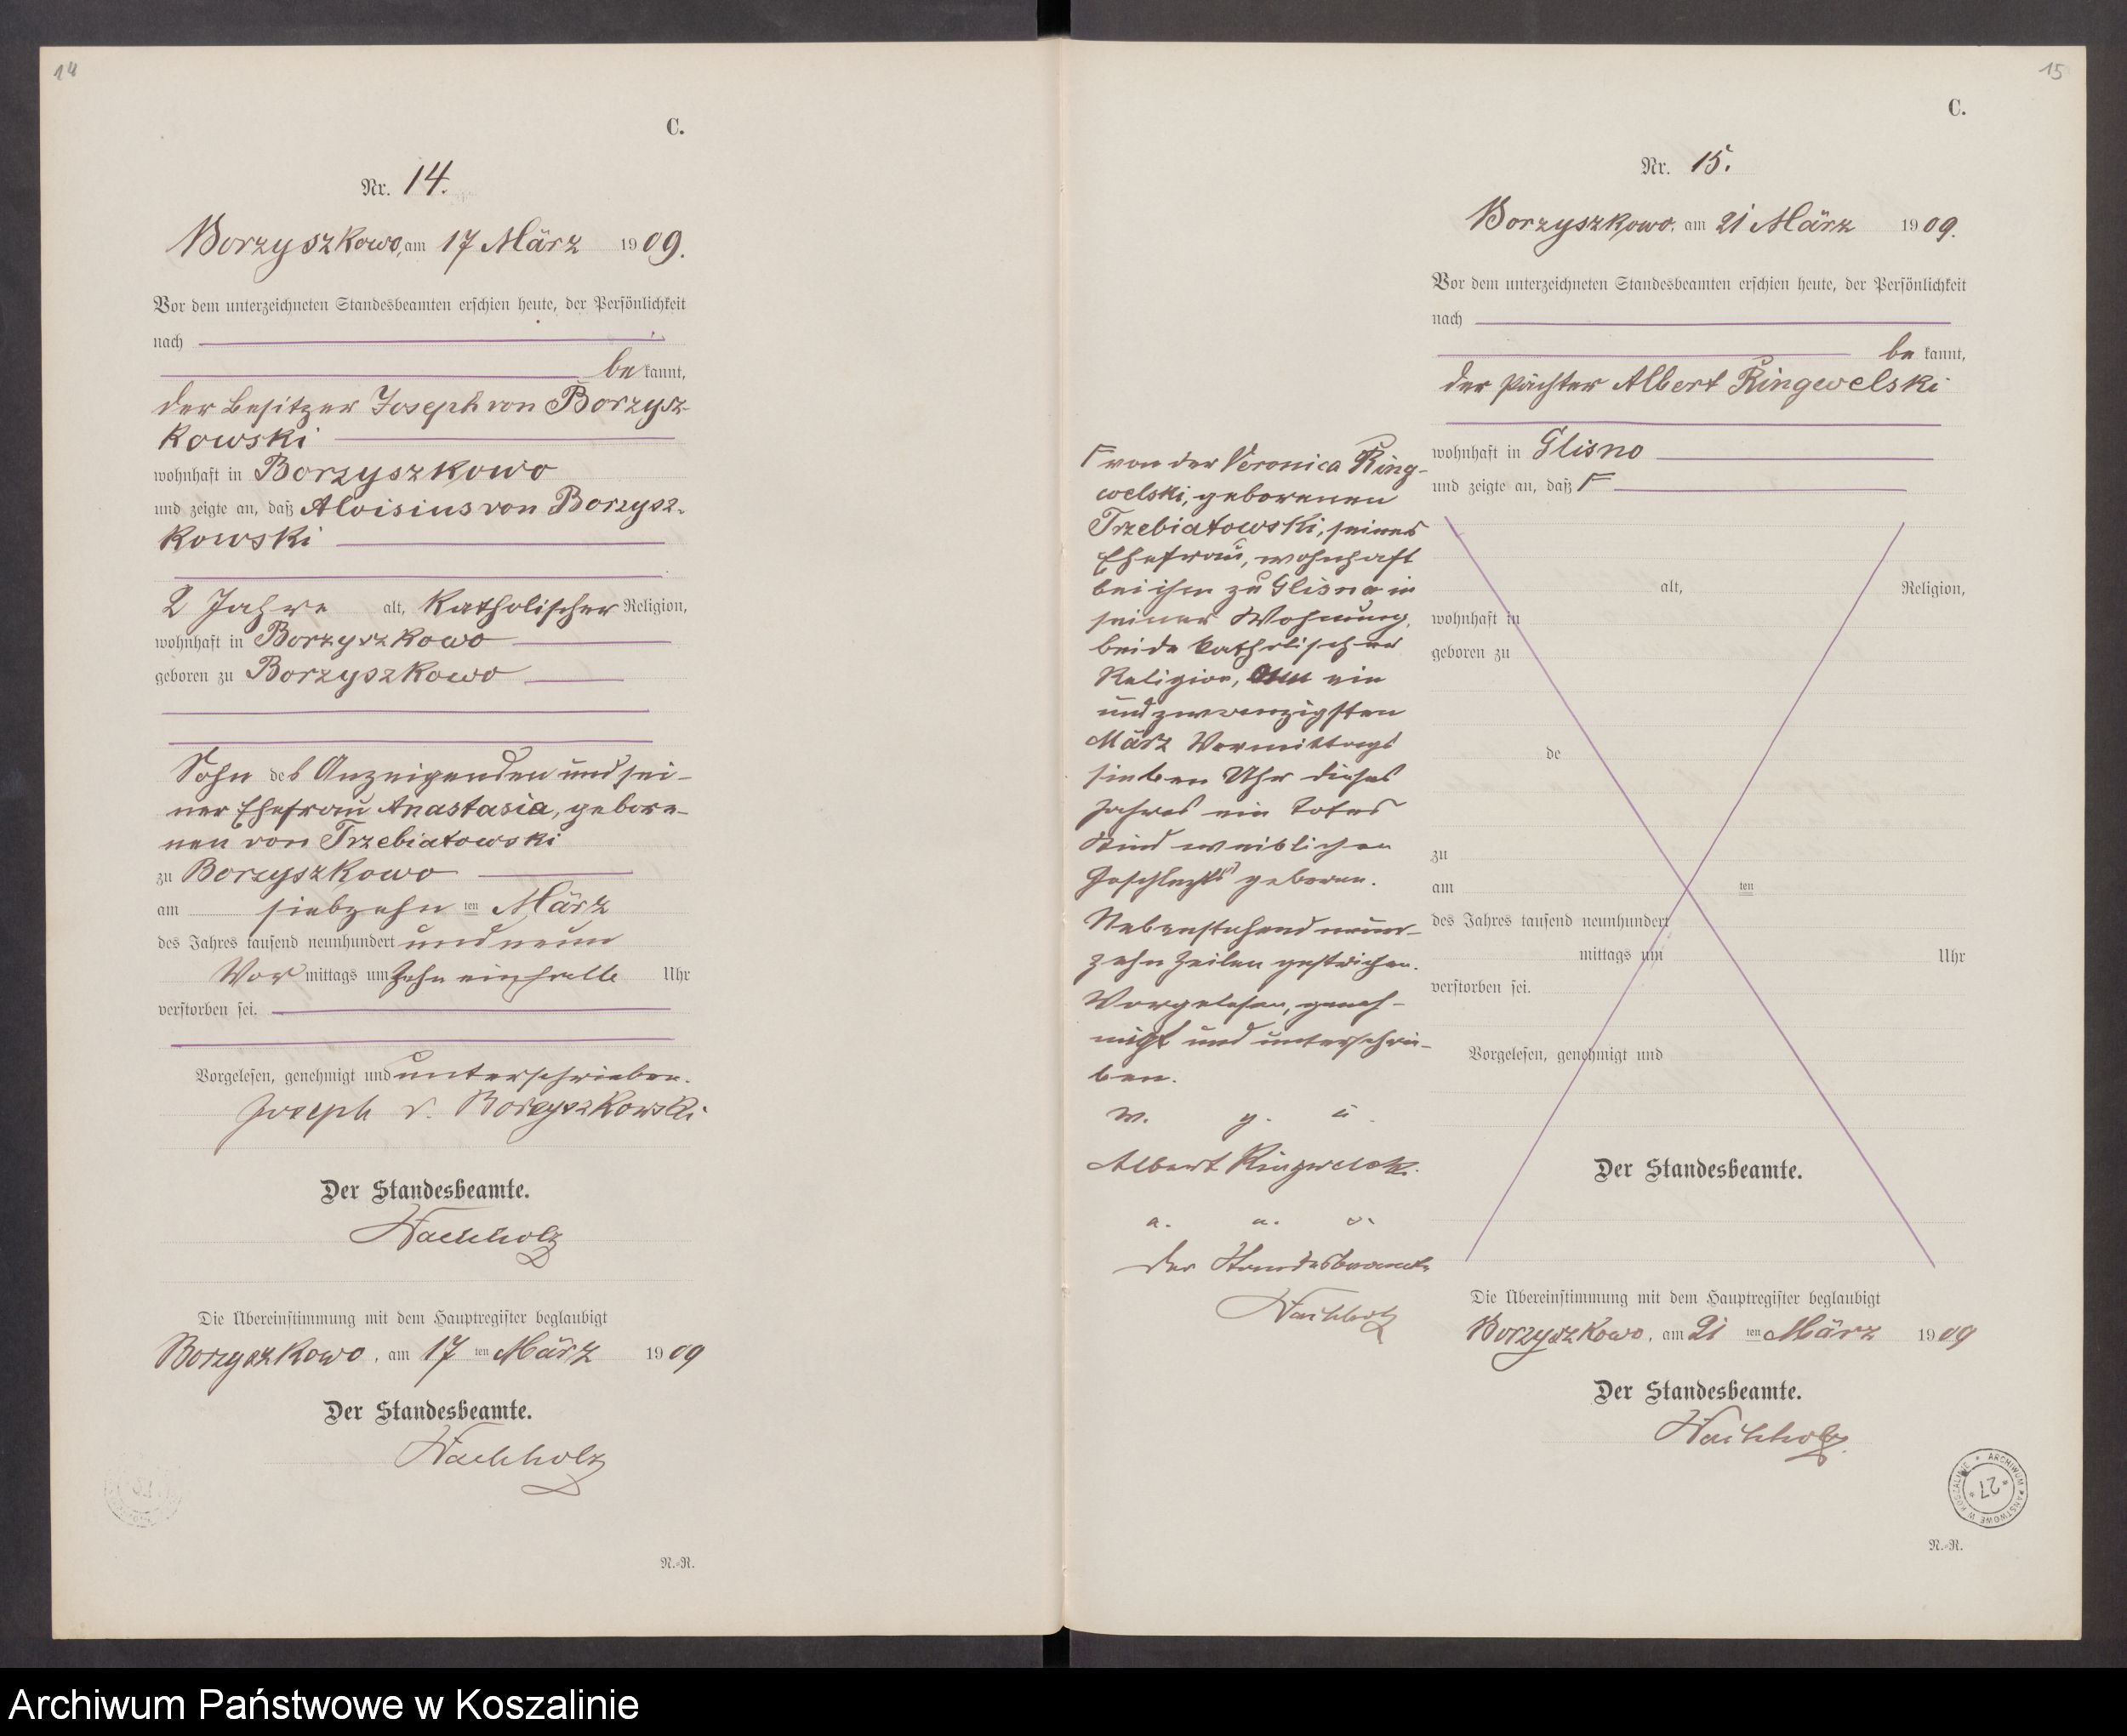 14
C.
Nr. 14.
Borzyszkowo, am 17 März 1909.
Vor dem unterzeichneten Standesbeamten erschien heute, der Persönlichkeit
nach
be kannt,
der Besitzer Joseph von Borzysz-
kowski
wohnhaft in Borzyszkowo
und zeigte an, daß Aloisius von Borzysz-
kowski
2 Jahre alt, katholischer Religion,
wohnhaft in Borzyszkowo
geboren zu Borzyszkowo
Sohn des Anzeigenden und sei-
ner Ehefrau Anastasia, gebore-
nen von Trzebiatowski
zu Borzyszkowo
am siebzehn ten März
des Jahres tausend neunhundert und neun
Vor mittags um zehn einhalb Uhr
verstorben sei.
Vorgelesen, genehmigt und unterschrieben.
Joseph v. Borzyszkowski
Der Standesbeamte.
Wachholz
Die Übereinstimmung mit dem Hauptregister beglaubigt
Borzyszkowo, am 17 ten März 1909
Der Standesbeamte.
Wachholz
N.-R.
15
C.
Nr. 15.
Borzyszkowo, am 21 März 1909.
Vor dem unterzeichneten Standesbeamten erschien heute, der Persönlichkeit
nach
be kannt,
der Pächter Albert Ringwelski
wohnhaft in Glisno
und zeigte an, daß Γ
Γ von der Veronica Ring-
welski, geborenen
Trzebiatowski, seiner
Ehefrau, wohnhaft
bei ihm zu Glisno in
seiner Wohnung,
beide katholischer
Religion, am ein
und zwanzigsten
März Vormittags
sieben Uhr dieses
Jahres ein totes
Kind weiblichen
Geschlechts geboren.
Nebenstehend neun-
zehn Zeilen gestrichen.
Vorgelesen, geneh-
migt und unterschrie-
ben.
w. g. u.
Albert Ringwelski.
a. u. s.
Der Standesbeamte
Wachholz
alt, Religion,
wohnhaft in
geboren zu
de
zu
am ten
des Jahres tausend neunhundert
mittags um Uhr
verstorben sei.
Vorgelesen, genehmigt und
Der Standesbeamte.
Die Übereinstimmung mit dem Hauptregister beglaubigt
Borzyszkowo, am 21 ten März 1909
Der Standesbeamte.
Wachholz
ARCHIWUM PAŃSTWOWE W KOSZALINIE
27
N.-R.
Archiwum Państwowe w Koszalinie